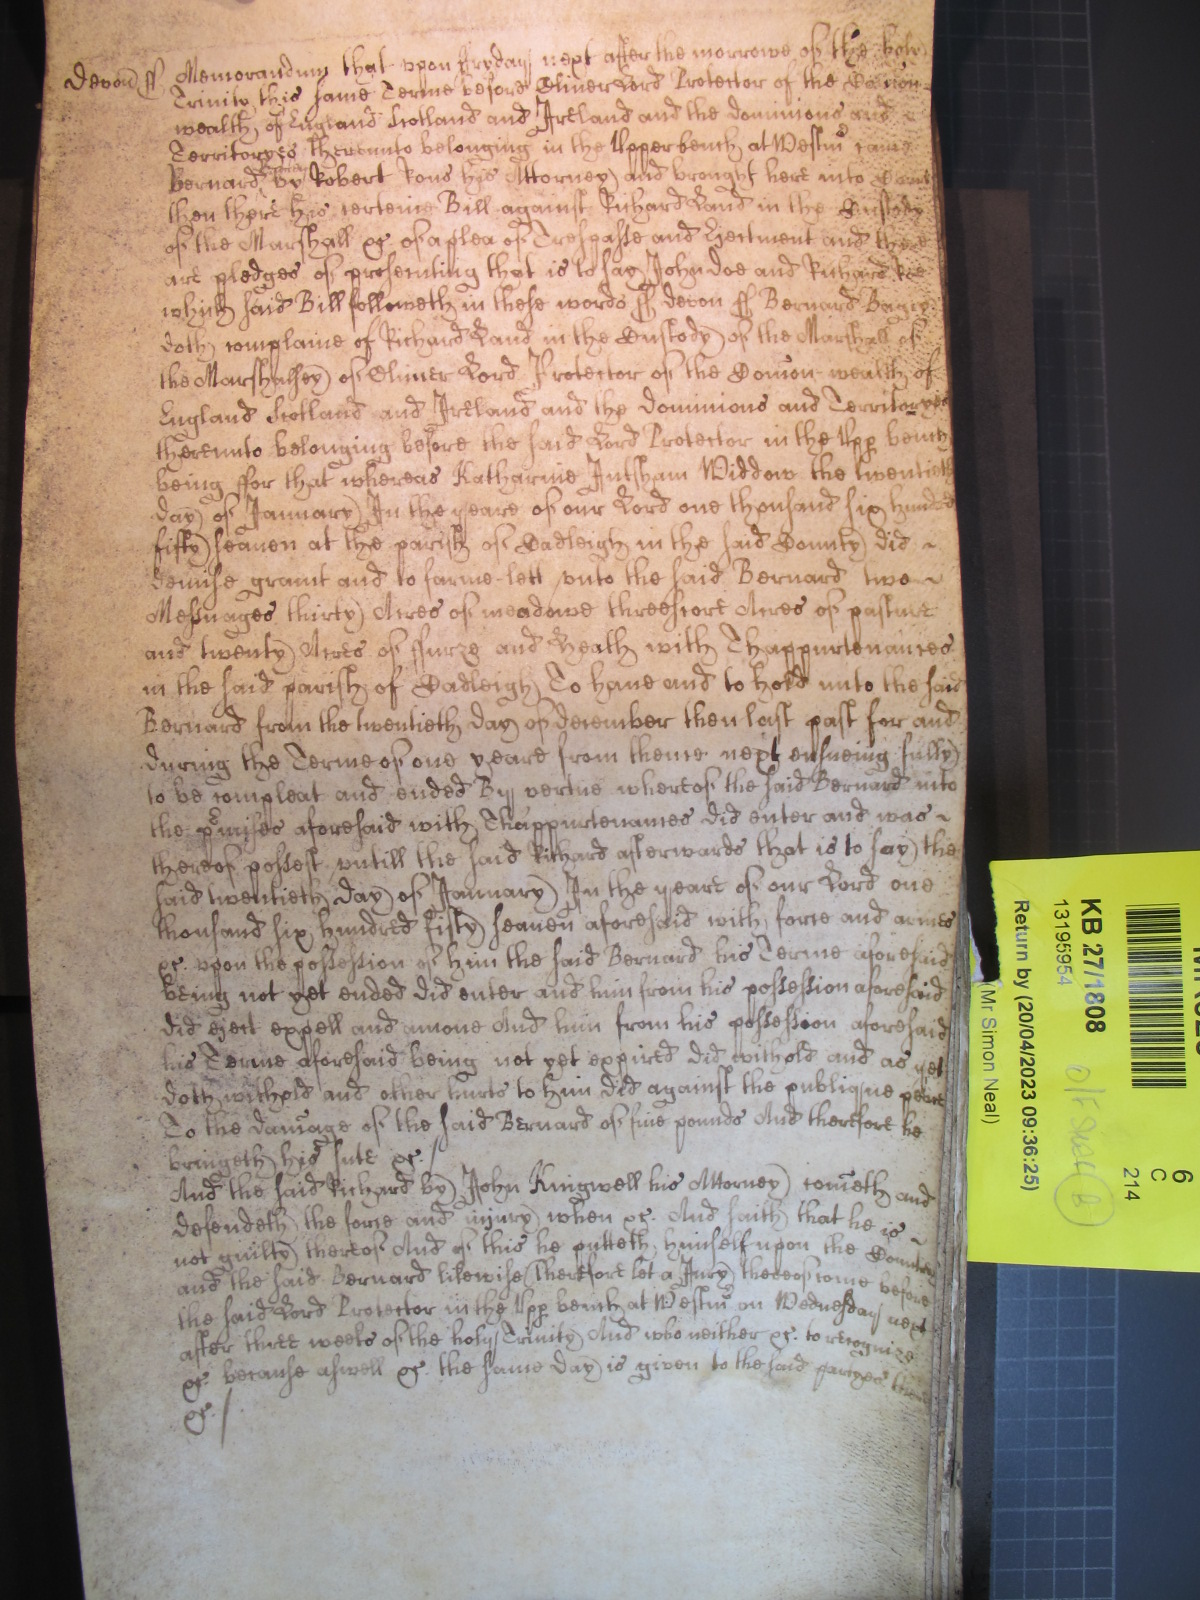 Devon ss Memorandum that upon ffryday next after the morrowe of the holy
Trinity this same Terme before Oliver Lord Protector of the Com̄on
wealth of England Scotland and Ireland and the dominions and
Territoryes thereunto belonging in the Upper bench at Westm̄ came
Bernard by Robert Rous his Attorney and brought here into Court
then there his certeine Bill against Richard Land in the Custody
of the Marshall &c. of a plea of Trespasse and Ejectment and there
are pledges of prosecuting that is to say John Doe and Richard Roe
which said Bill followeth in these words ss Devon ss Bernard
doth complaine of Richard Land in the Custody of the Marshall of
the Marshalsey of Oliver Lord Protector of the Com̄on-wealth of
England Scotland and Ireland and the dominions and Territoryes
thereunto belonging before the said Lord Protector in the Upp bench
being ffor that whereas Katharine Intsham Widdow the twentieth
day of January In the yeare of our Lord one thousand six hundred
fifty seaven at the parish of Cadleigh in the said County did
demise graunt and to farme-lett unto the said Bernard two
Messuages thirty Acres of meadowe threescore Acres of pasture
and twenty Acres of ffurze and Heath with Thappurtenances
in the said parish of Cadleigh To have and to hold unto the said
Bernard from the twentieth day of december then last past for and
during the Terme of one yeare from thence next ensueing fully
to be compleat and ended By vertue whereof the said Bernard into
the p̄mises aforesaid with Thappurtenances did enter and was
thereof possest untill the said Richard afterwards that is to say the
said twentieth day of January In the yeare of our Lord one
thousand six hundred fifty seaven aforesaid with force and armes
&c. upon the possession of him the said Bernard his Terme aforesaid
being not yet ended did enter and him from his possession aforesaid
did eject expell and amove And him from his possession aforesaid
his Terme aforesaid being not yet expired did withold and as yet
doth withold and other hurts to him did against the publique peace
To the damage of the said Bernard of five pounds And therefore he
bringeth his sute &c. /
And the said Richard by John Kingwell his Attorney cometh and
defendeth the force and injury when &c. And saith that he is
not guilty thereof And of this he putteth himself upon the Countrey
and the said Bernard likewise Therefore let a Jury thereof come before
the said Lord Protector in the Upp bench at Westm̄ on Wednesday next
after three weeks of the holy Trinity And who neither &c. to recognize
&c. because aswell &c. the same day is given to the said partyes there
&c. /
6
C
214
KB 27/1808
13195954
Return by (20/04/2023 09:36:25)
(Mr Simon Neal)